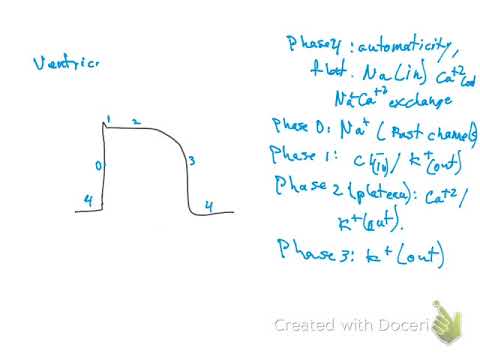 Ventric
Phase 4: automaticity,
float. Na (in) Ca+2
Na+ Ca+2 exchange
Phase 0: Na+ (Fast channels)
Phase 1: Cl- (in) / K+ (out)
Phase 2 (plateau): Ca+2 /
K+ (out).
Phase 3: K+ (out)
1
2
0
3
4
4
Created with Doceri